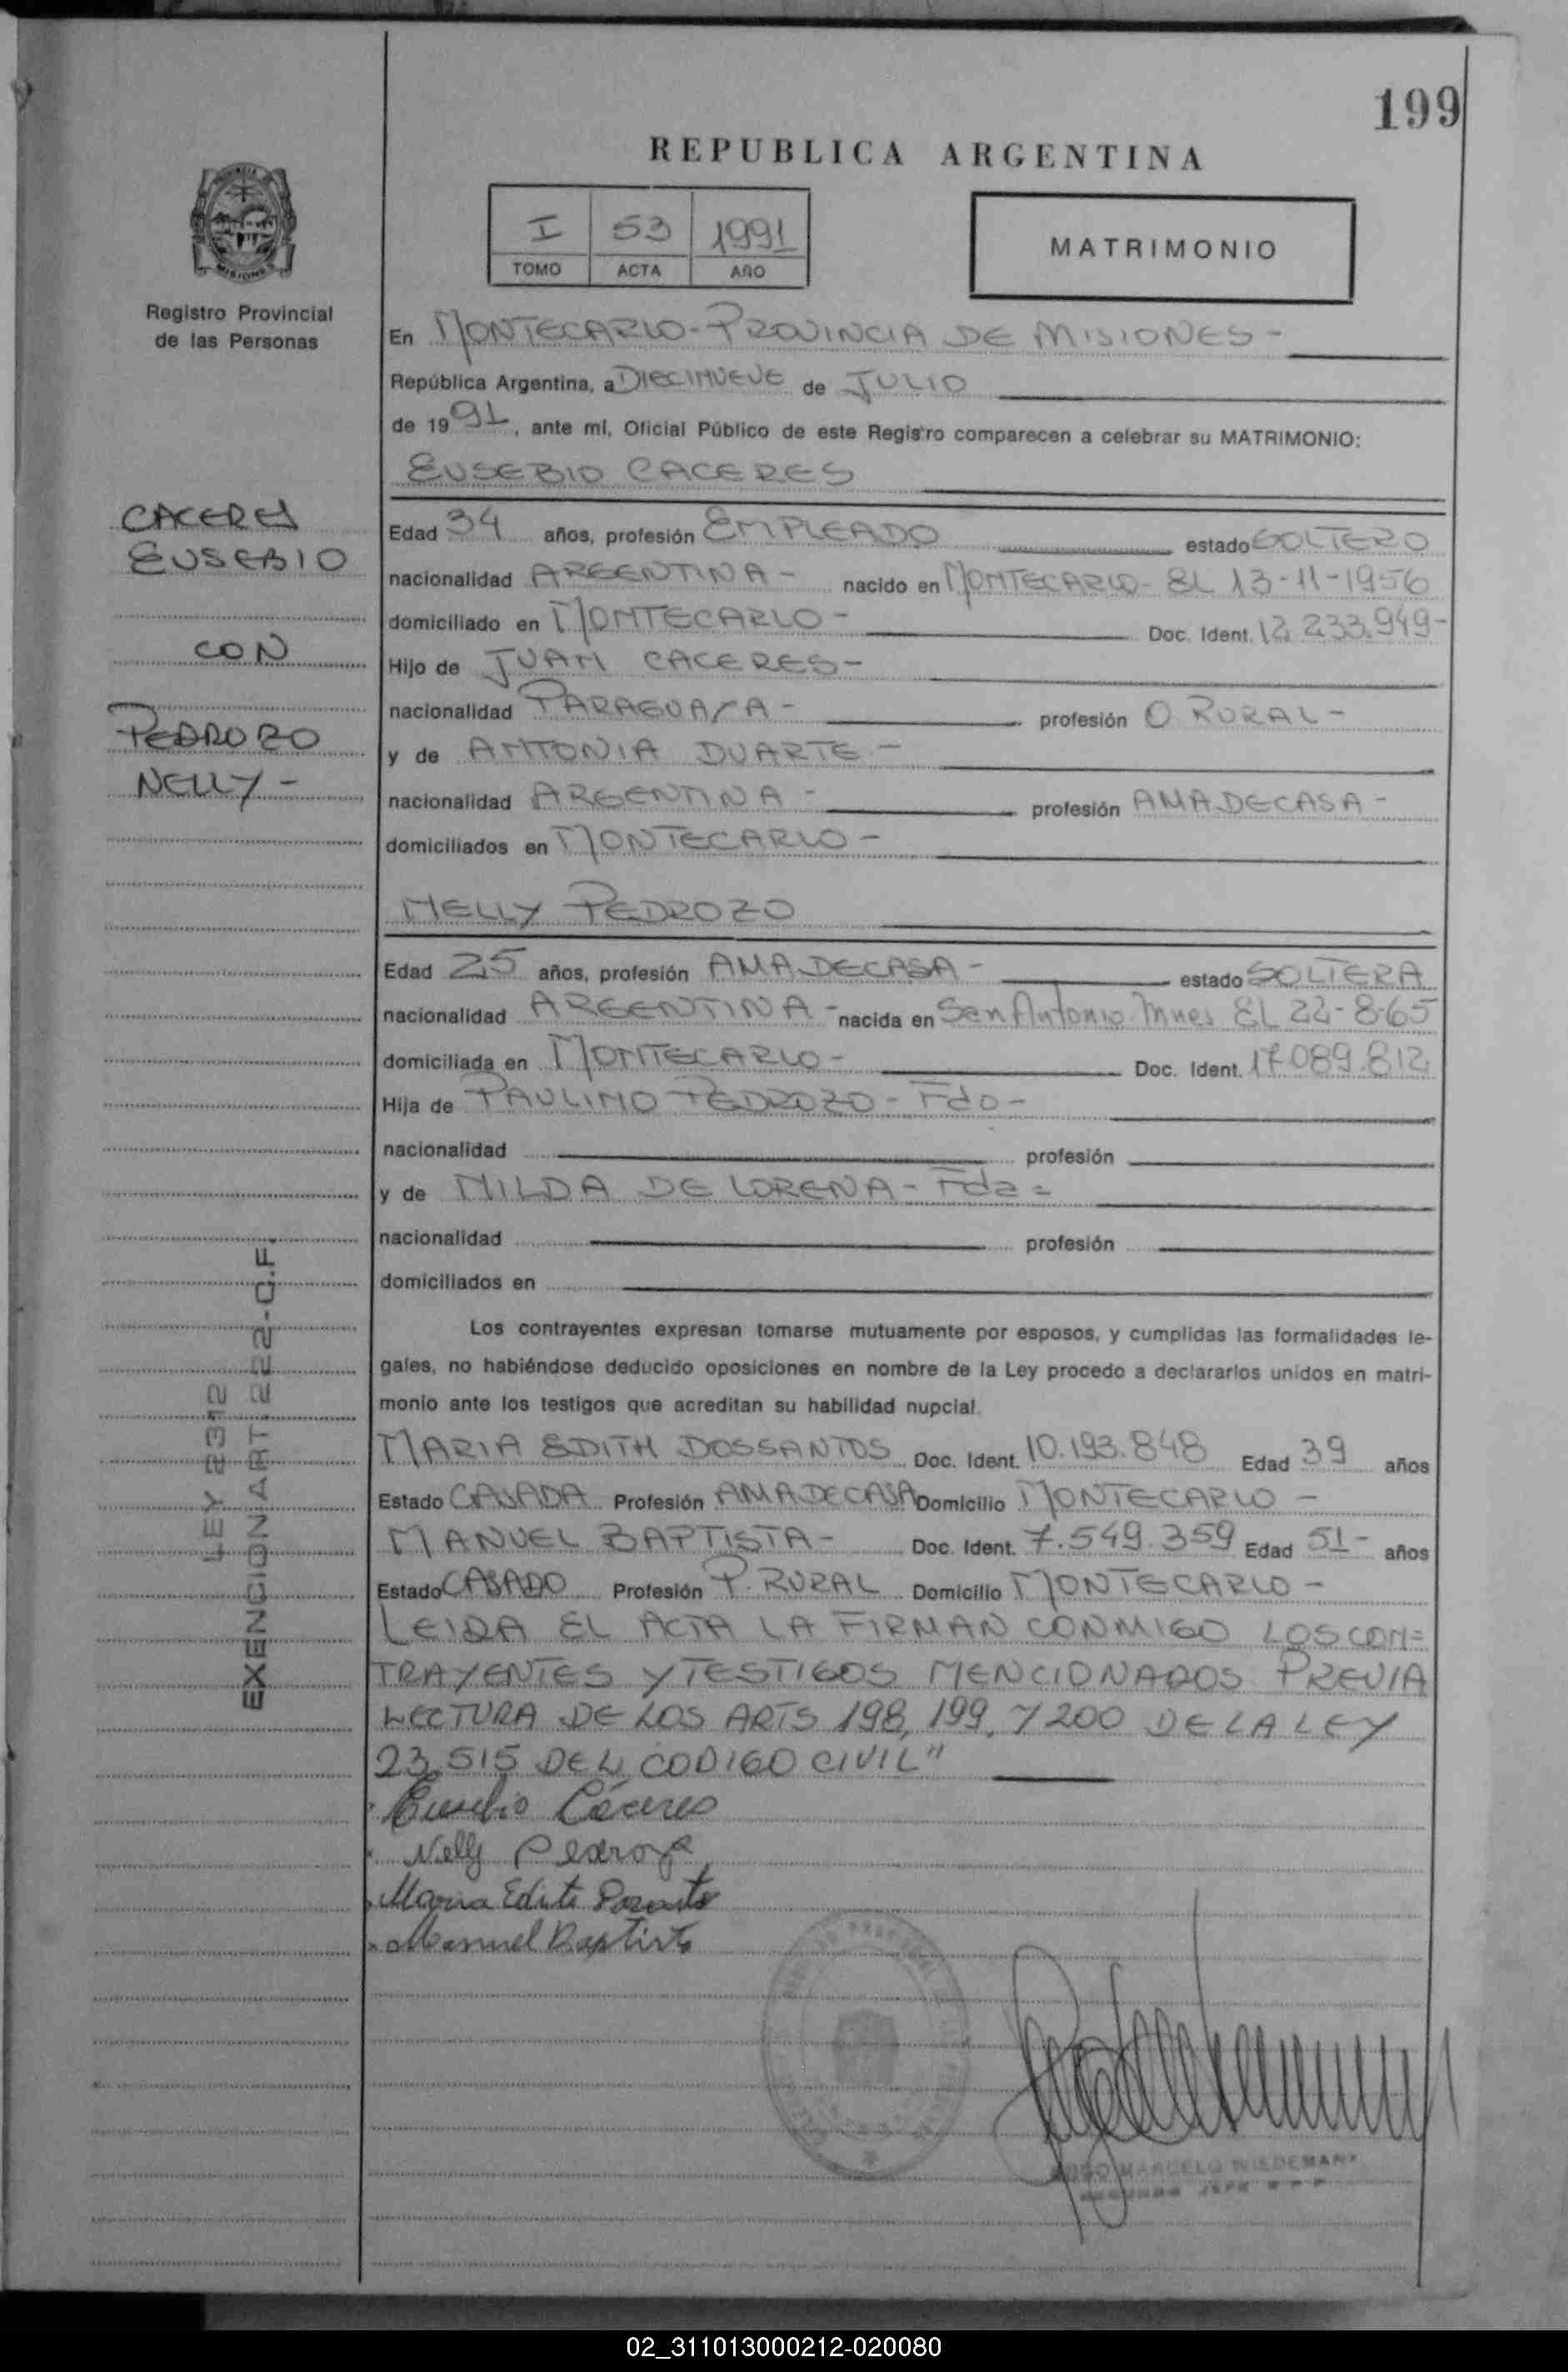 199
REPUBLICA ARGENTINA
I 53 1991
TOMO ACTA AÑO
MATRIMONIO
Registro Provincial
de las Personas
CACERES
EUSEBIO
CON
PEDROZO
NELLY-
LEY 2312
EXENCION ART. 22 2-O.F.
En MONTECARLO-PROVINCIA DE MISIONES-
República Argentina, a DIECINUEVE de JULIO
de 1991, ante mí, Oficial Público de este Registro comparecen a celebrar su MATRIMONIO:
EUSEBIO CACERES
Edad 34 años, profesión EMPLEADO estado SOLTERO
nacionalidad ARGENTINA- nacido en MONTECARLO- EL 13-11-1956
domiciliado en MONTECARLO- Doc. Ident. 12.233.949-
Hijo de JUAN CACERES-
nacionalidad PARAGUAYA- profesión O. RURAL-
y de ANTONIA DUARTE-
nacionalidad ARGENTINA- profesión AMADECASA-
domiciliados en MONTECARLO-
NELLY PEDROZO
Edad 25 años, profesión AMADECASA- estado SOLTERA
nacionalidad ARGENTINA- nacida en San Antonio Mnes EL 22-8-65
domiciliada en MONTECARLO- Doc. Ident. 17.089.812
Hija de PAULINO PEDROZO-Fdo-
nacionalidad profesión
y de NILDA DE LORENA-Fda=
nacionalidad profesión
domiciliados en
Los contrayentes expresan tomarse mutuamente por esposos, y cumplidas las formalidades le-
gales, no habiéndose deducido oposiciones en nombre de la Ley procedo a declararlos unidos en matri-
monio ante los testigos que acreditan su habilidad nupcial.
MARIA EDITH DOSSANTOS Doc. Ident. 10.193.848 Edad 39 años
Estado CASADA Profesión AMADECASA Domicilio MONTECARLO-
MANUEL BAPTISTA- Doc. Ident. 7.549.359 Edad 51- años
Estado CASADO Profesión P. RURAL Domicilio MONTECARLO-
LEIDA EL ACTA LA FIRMAN CONMIGO LOS CON=
TRAYENTES Y TESTIGOS MENCIONADOS PREVIA
LECTURA DE LOS ARTS 198, 199, Y 200 DE LA LEY
23.515 DEL CODIGO CIVIL"
Eusebio Cáceres
Nelly Pedrozo
Maria Edith
Manuel Baptista
MARCELO WIEDEMANN
JEFE
02_311013000212-020080